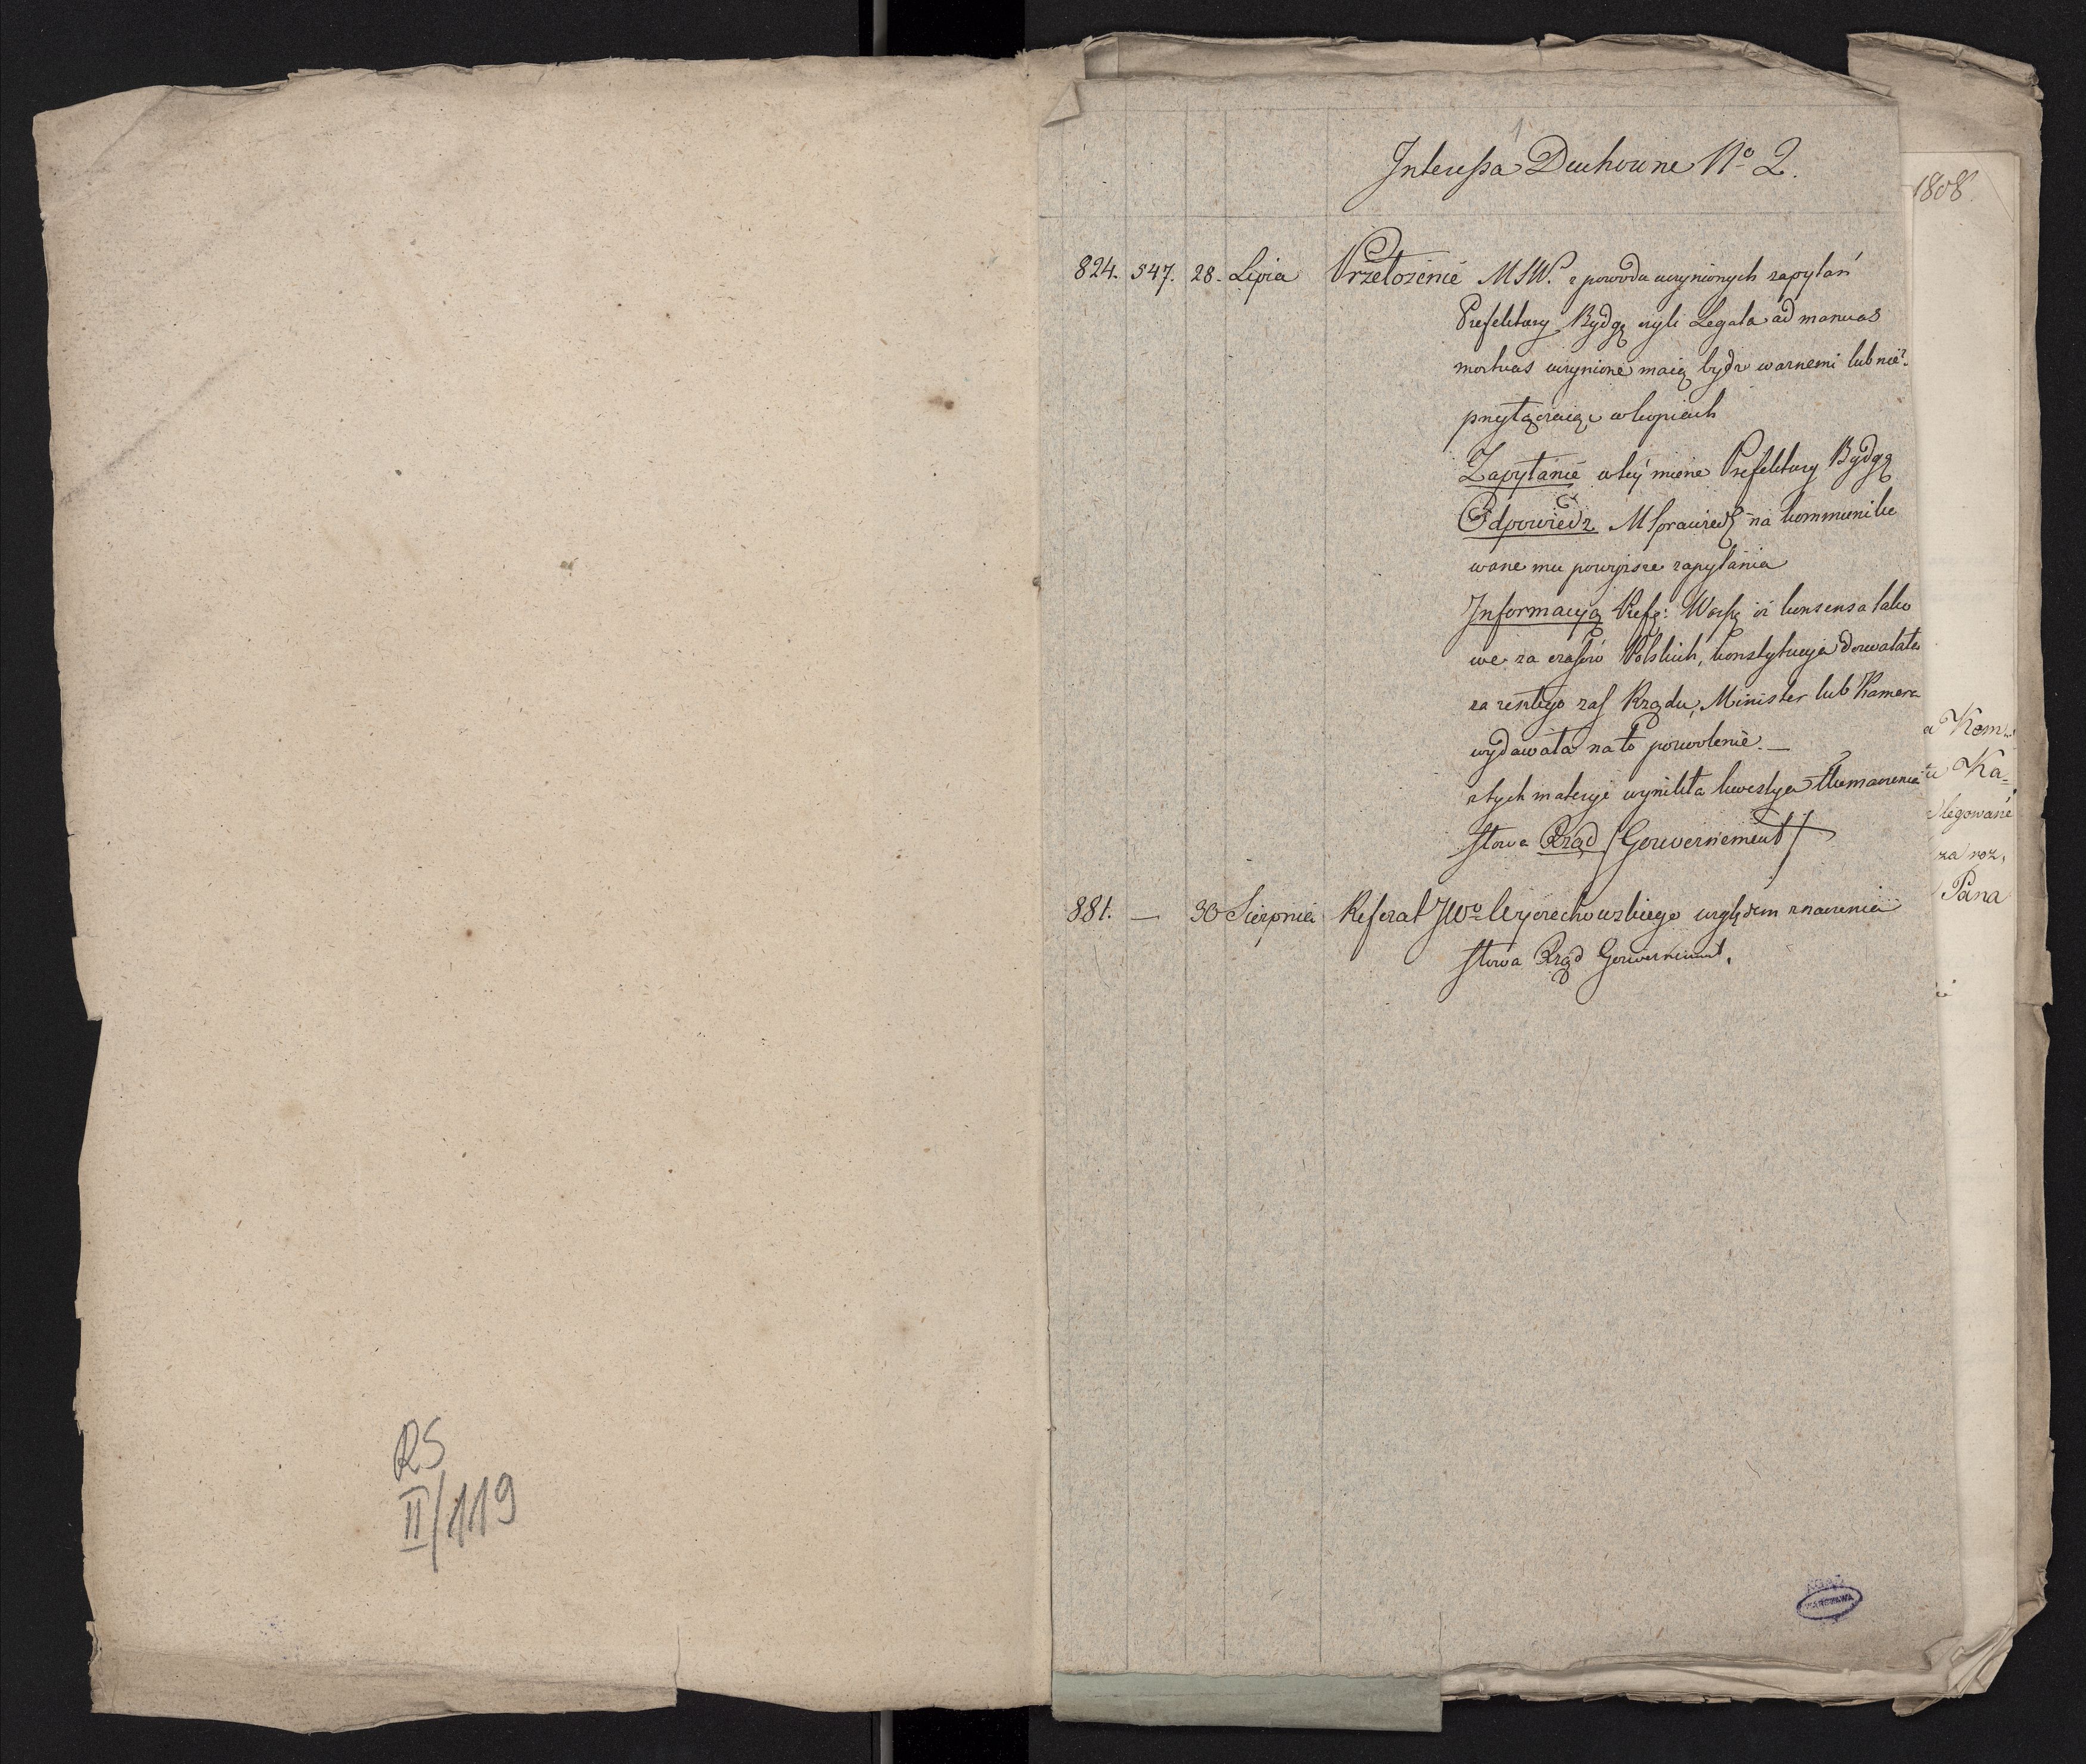 RS
II/119
1
Interessa Duchowne No 2.
824. 547. 28. Lipca Przełożenie MSW. z powodu uczynionych zapytań
Prefektury Bydg czyli Legata ad manuas
mortuas uczynione maią bydz ważnemi lub nie?
przyłączaiąc w kopiach
Zapytanie w tey mierze Prefektury Bydg
Odpowiedz MSprawied na kommuniko
wane mu powyższe zapytania
Informacyą Pref: Warsz iż konsensa tako
we za czasów Polskich, konstytucya dozwalała
za zeszłego zaś Rządu, Minister lub Kamera
wydawała na to pozwolenie. —
z tych materyi wynikła kwestya tłumaczenia
słowa Rząd /Gouvernement/
881. — 30 Sierpnia Referat JWo Wyczechowskiego względem znaczenia
słowa Rząd Gouvernement.
1808.
a Kom
tu Ka=
legowane
za roz,
Pana
AGAD
WARSZAWA